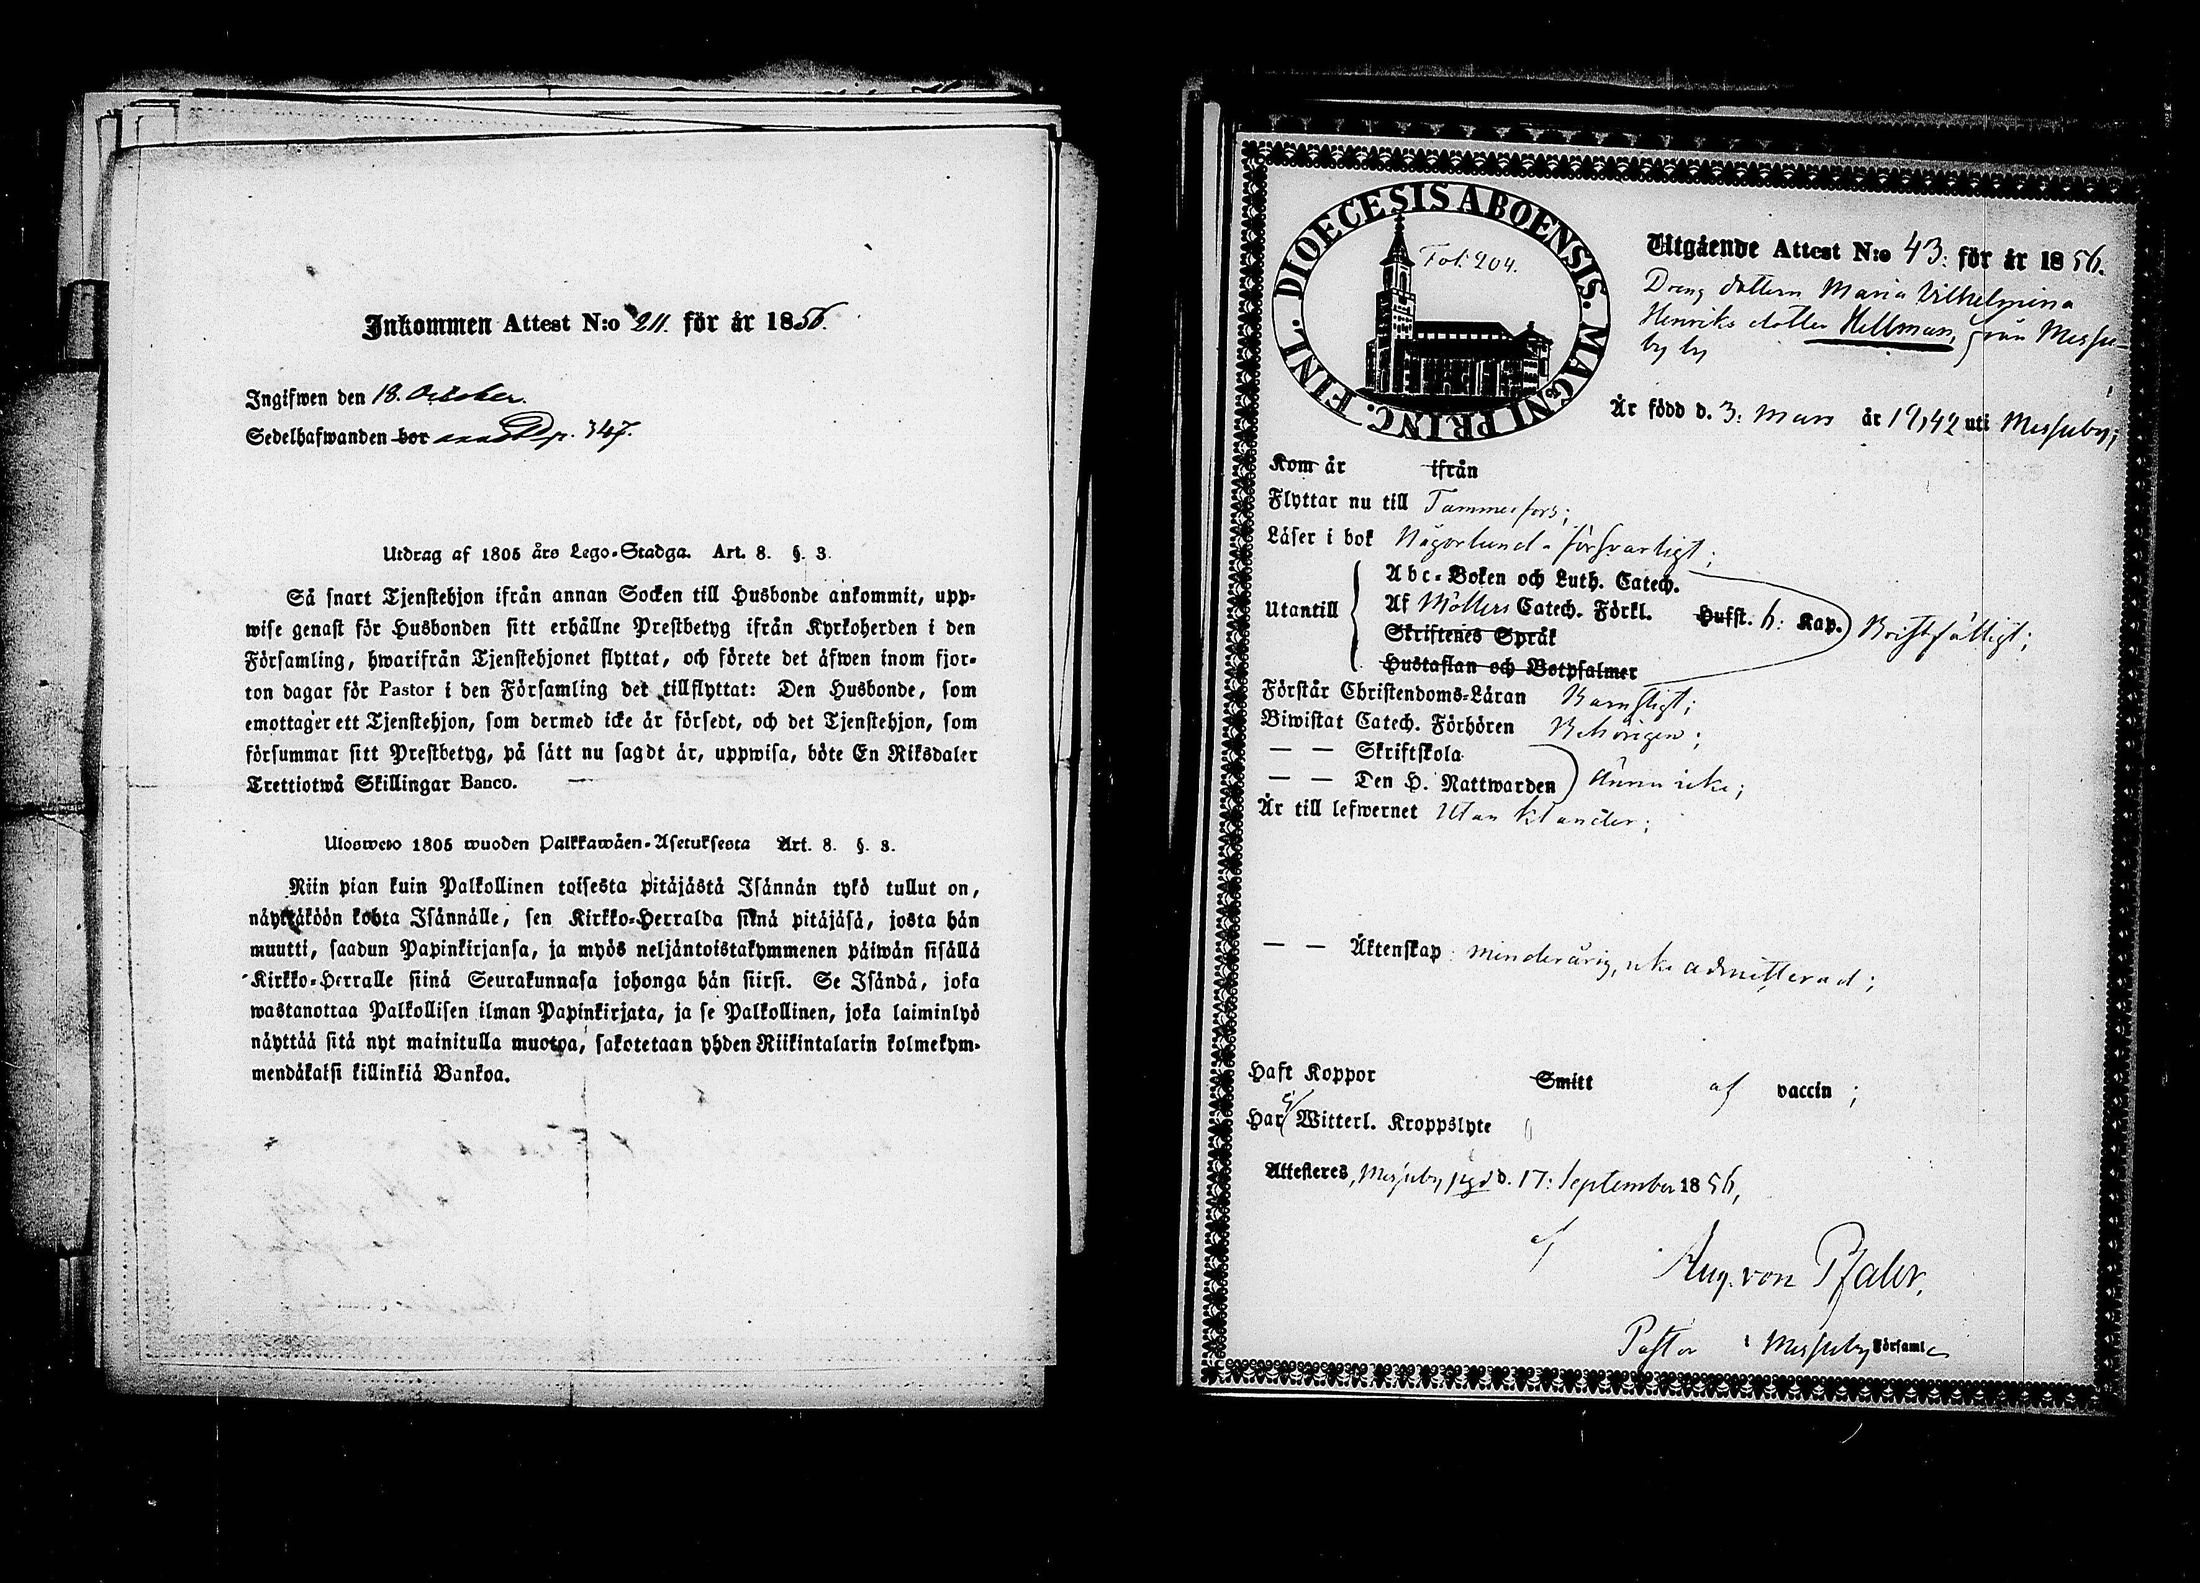 Inkommen Attest N:o 211. för år 1856.
Ingifwen den 18. October.
Sedelhafwanden bor p. 347.
Utdrag af 1805 års Lego-Stadga. Art. 8. §. 3.
Så snart Tjenstehjon ifrån annan Socken till Husbonde ankommit, upp-
wise genast för Husbonden sitt erhållne Prestbetyg ifrån Kyrkoherden i den
Församling, hwarifrån Tjenstehjonet flyttat, och förete det äfwen inom fjor-
ton dagar för Pastor i den Församling det tillflyttat: Den Husbonde, som
emottager ett Tjenstehjon, som dermed icke är försedt, och det Tjenstehjon, som
försummar sitt Prestbetyg, på sätt nu sagdt är, uppwisa, böte En Riksdaler
Trettiotwå Skillingar Banco.
Ulosweto 1805 wuoden Palkkawäen-Asetuksesta Art. 8. §. 3.
Niin pian kuin Palkollinen toisesta pitäjästä Isännän tykö tullut on,
näyttäköön kohta Isännälle, sen Kirkko-Herralda siinä pitäjäsä, josta hän
muutti, saadun Papinkirjansa, ja myös neljäntoistakymmenen päiwän sisällä
Kirkko-Herralle siinä Seurakunnasa johonga hän siirsi. Se Isändä, joka
wastanottaa Palkollisen ilman Papinkirjata, ja se Palkollinen, joka laiminlyö
näyttää sitä nyt mainitulla muotoa, sakotetaan yhden Riikintalarin kolmekym-
mendäkaksi killinkiä Bankoa.
DIOECESIS ABOENSIS. MAGNI PRINC. FINL.
Fol. 204.
Utgående Attest N:o 43: för år 1856.
Dreng dottern Maria Vilhelmina
Henriks dotter Hellman, från Messu-
by by
Är född d. 3: Mars år 1842 uti Messuby;
Kom år ifrån
Flyttar nu till Tammerfors;
Läser i bok Någorlunda försvarligt;
Abc-Boken och Luth. Catech.
Utantill Af Möllers Catech. Förkl. Hufst. 6: Kap. Bristfälligt;
Skriftenes Språk
Hustaflan och Botpsalmer
Förstår Christendoms-Läran Barnsligt;
Biwistat Catech. Förhören Behörigen;
— — Skriftskola
— — Den H. Nattwarden ännu icke;
Är till lefwernet Utan klander;
— — Äktenskap minderårig, icke admitterad;
Haft Koppor Smitt af vaccin;
Har ej Witterl. Kroppslyte
Attesteres, Messuby pgd d. 17: September 1856,
af
Aug. von Pfaler.
Pastor i Messuby Församl.